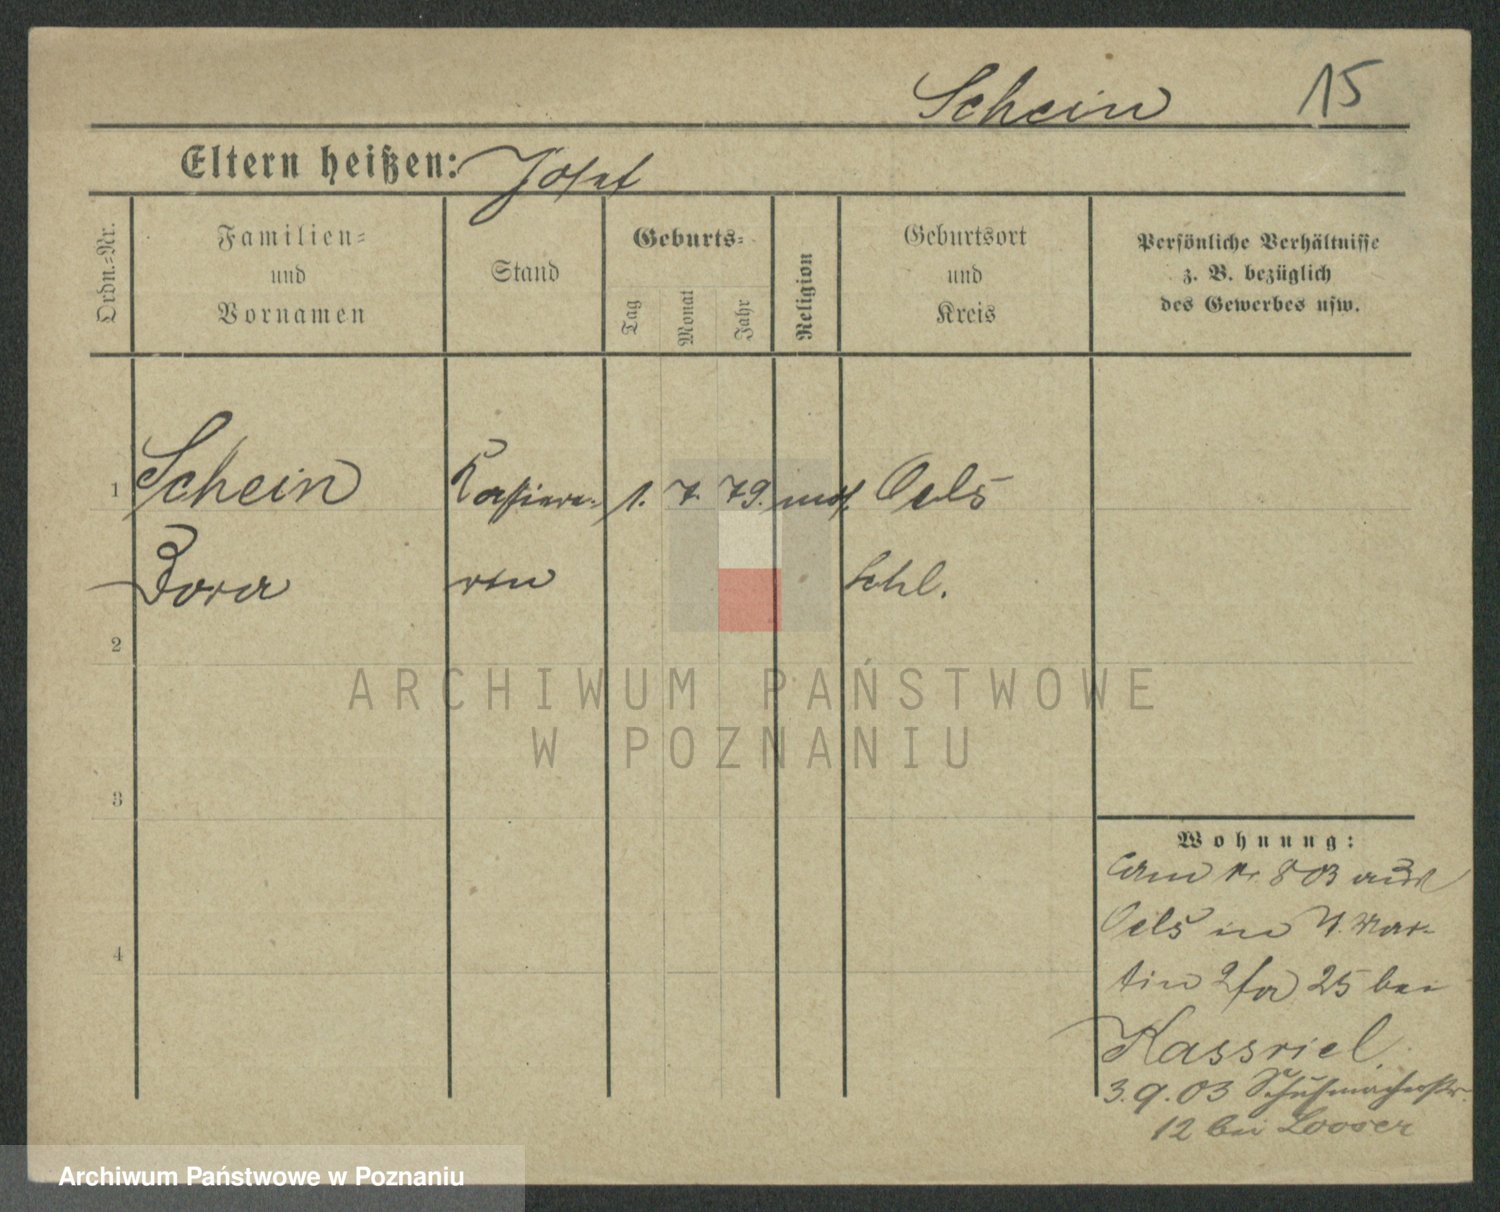 Schein 15
Eltern heißen: Josef
Ordn.-Nr.
Familien-
und
Vornamen
Stand
Geburts-
Tag
Monat
Jahr
Religion
Geburtsort
und
Kreis
Persönliche Verhältnisse
z. B. bezüglich
des Gewerbes usw.
1 Schein 1. 7. 79. mos. Oels
Schl.
2
3
4
Wohnung:
803 aus
Oels in Mar-
tin 25 bei
Kassriel.
3.9.03 Schuhmacherstr.
12 bei Looser
ARCHIWUM PAŃSTWOWE
W POZNANIU
Archiwum Państwowe w Poznaniu